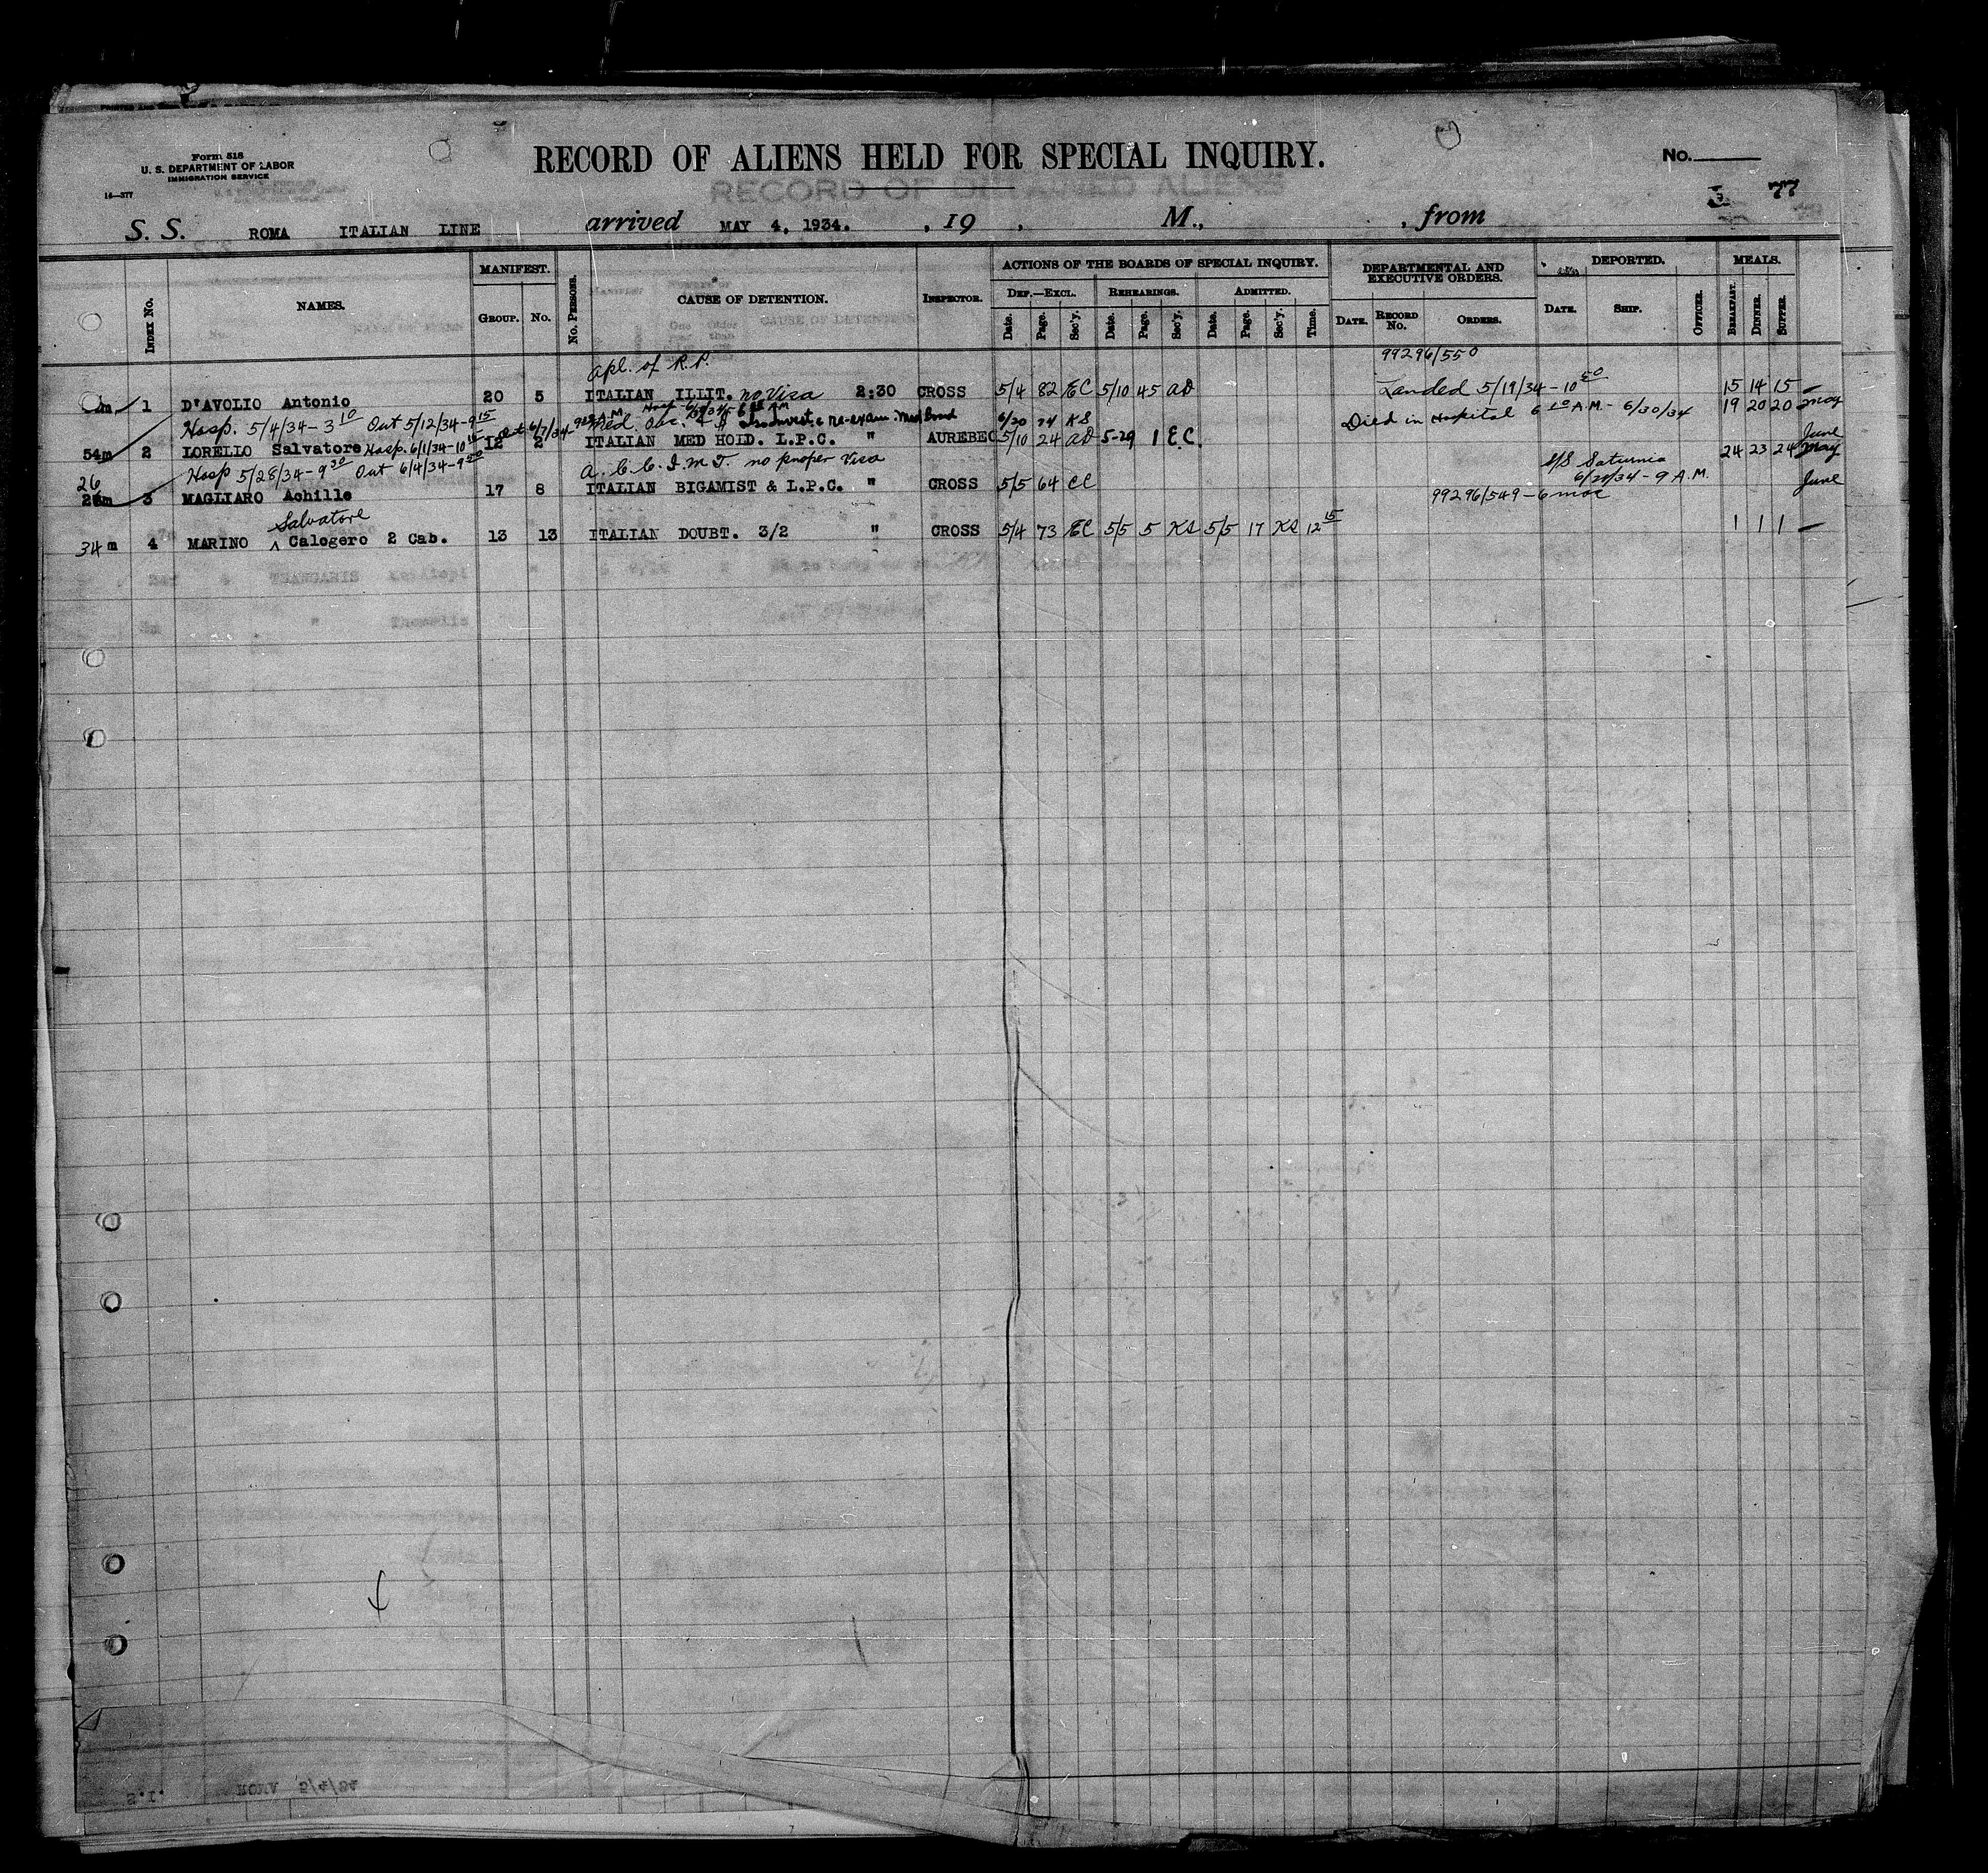 Form 518
U. S. DEPARTMENT OF LABOR
IMMIGRATION SERVICE
16—377
RECORD OF ALIENS HELD FOR SPECIAL INQUIRY.
No.
77
S. S. ROMA ITALIAN LINE arrived MAY 4, 1934. , 19 , M., , from
INDEX No. NAMES. MANIFEST. GROUP. No. No. PERSONS. CAUSE OF DETENTION. INSPECTOR. ACTIONS OF THE BOARDS OF SPECIAL INQUIRY. DEF.—EXCL. Date. Page. Sec'y. REHEARINGS. Date. Page. Sec'y. ADMITTED. Date. Page. Sec'y. Time. DEPARTMENTAL AND EXECUTIVE ORDERS. DATE. RECORD No. ORDERS. DEPORTED. DATE. SHIP. OFFICER. MEALS. BREAKFAST. DINNER. SUPPER.
apl. of R.P. 99296/550
m 1 D'AVOLIO Antonio 20 5 ITALIAN ILLIT. no Visa 2:30 CROSS 5/4 82 EC 5/10 45 AD Landed 5/19/34 - 10 50 15 14 15 —
Hosp. 5/4/34 - 3 10 Out 5/12/34 - 9 15 Out 6/7/34 6/20 24 KS Died in Hospital 6 10 A.M. - 6/30/34 19 20 20 May
54m 2 LORELLO Salvatore Hosp. 6/1/34 - 10 15 12 2 ITALIAN MED HOLD. L.P.C. " AUREBEC 5/10 24 AD 5-29 1 E.C. June
Hosp 5/28/34 - 9 30 Out 6/4/34 - 9 50 A. C. C. I. M. T. no proper Visa S/S Saturnia 24 23 24 May
26
m 3 MAGLIARO Achille 17 8 ITALIAN BIGAMIST & L.P.C. " CROSS 5/5 64 CC 99296/549 - 6 mos 9 A.M. June
Salvatore
34 m 4 MARINO ^ Calogero 2 Cab. 13 13 ITALIAN DOUBT. 3/2 " CROSS 5/4 73 EC 5/5 5 KS 5/5 17 KS 12 15 1 1 1 —
S.I. ROMA 5/4/34